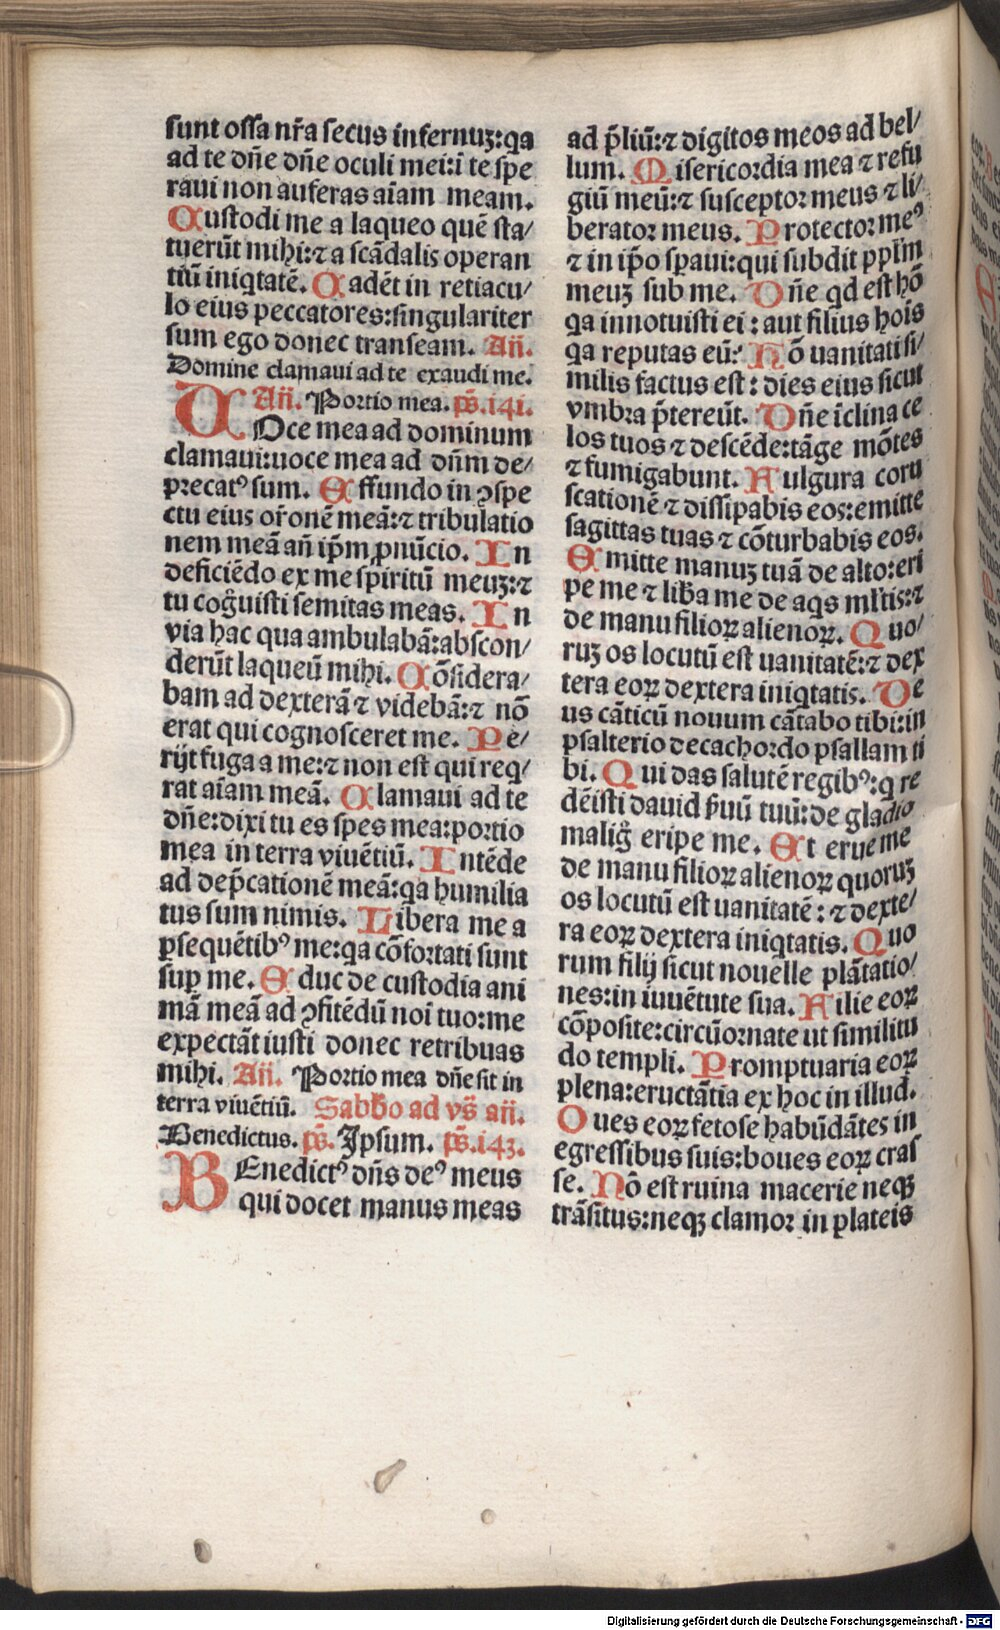 sunt ossa nr̄a secus infernuꝫ:qa
ad te dn̄e dn̄e oculi mei:ī te spe
raui non auferas aīam meam.
Custodi me a laqueo quē sta/
tuerūt mihi:⁊ a scādalis operan
tiū iniqtatē. Cadēt in retiacu/
lo eius peccatores:singulariter
sum ego donec transeam. Añ.
Domine clamaui ad te exaudi me.
Añ. Portio mea. ps̄.141.
VOce mea ad dominum
clamaui:uoce mea ad dn̄m de/
precatꝰ sum. Effundo in ꝯspe
ctu eius or̄onē meā:⁊ tribulatio
nem meā an̄ ip̄m ꝓnūcio. In
deficiēdo ex me sp̄iritū meuꝫ:⁊
tu cog̃uisti semitas meas. In
via hac qua ambulabā:abscon/
derūt laqueū mihi. Cōsidera/
bam ad dexterā ⁊ videbā:⁊ nō
erat qui cognosceret me. Pe/
rijt fuga a me:⁊ non est qui req/
rat aīam meā. Clamaui ad te
dn̄e:dixi tu es spes mea:portio
mea in terra viuētiū. Intēde
ad dep̄cationē meā:qa humilia
tus sum nimis. Libera me a
ꝑsequētibꝰ me:qa cōfortati sunt
suꝑ me. Educ de custodia ani
mā meā ad ꝯfitēdū noi tuo:me
expectāt iusti donec retribuas
mihi. Añ. Portio mea dn̄e sit in
terra viuētiū. Sabbo ad vs̄ añ.
Benedictus. ps̄. Ipsum. ps̄.143.
BEnedictꝰ dn̄s deꝰ meus
qui docet manus meas
ad p̄liū:⁊ digitos meos ad bel/
lum. Misericordia mea ⁊ refu
giū meū:⁊ susceptor meus ⁊ li/
berator meus. Protector meꝰ
⁊ in ip̄o sꝑaui:qui subdit pplm̄
meuꝫ sub me. Dn̄e qd est hō
qa innotuisti ei : aut filius hoīs
qa reputas eū: Hō uanitati si/
milis factus est : dies eius sicut
vmbra p̄tereūt. Dn̄e īclina ce
los tuos ⁊ descēde:tāge mōtes
⁊ fumigabunt. Fulgura coru
scationē ⁊ dissipabis eos:emitte
sagittas tuas ⁊ cōturbabis eos.
Emitte manuꝫ tuā de alto:eri
pe me ⁊ lib̄a me de aqs ml̄tis:⁊
de manu filioꝝ alienoꝝ. Quo/
ruꝫ os locutū est uanitatē:⁊ dex
tera eoꝝ dextera iniqtatis. De
us cāticū nouum cātabo tibi:in
psalterio decachordo psallam ti
bi. Qui das salutē regibꝰ:q re
dēisti dauid s̄uū tuū:de gladio
malig̃ eripe me. Et erue me
de manu filioꝝ alienoꝝ quoruꝫ
os locutū est uanitatē : ⁊ dexte/
ra eoꝝ dextera iniqtatis. Quo
rum filij sicut nouelle plātatio/
nes:in iuuētute sua. Filie eoꝝ
cōposite:circūornate ut similitu
do templi. Promptuaria eoꝝ
plena:eructātia ex hoc in illud.
Oues eoꝝ fetose habūdātes in
egressibus suis:boues eoꝝ cras
se. Nō est ruina macerie neqꝫ
trāsitus:neqꝫ clamor in plateis
Digitalisierung gefördert durch die Deutsche Forschungsgemeinschaft - DFG